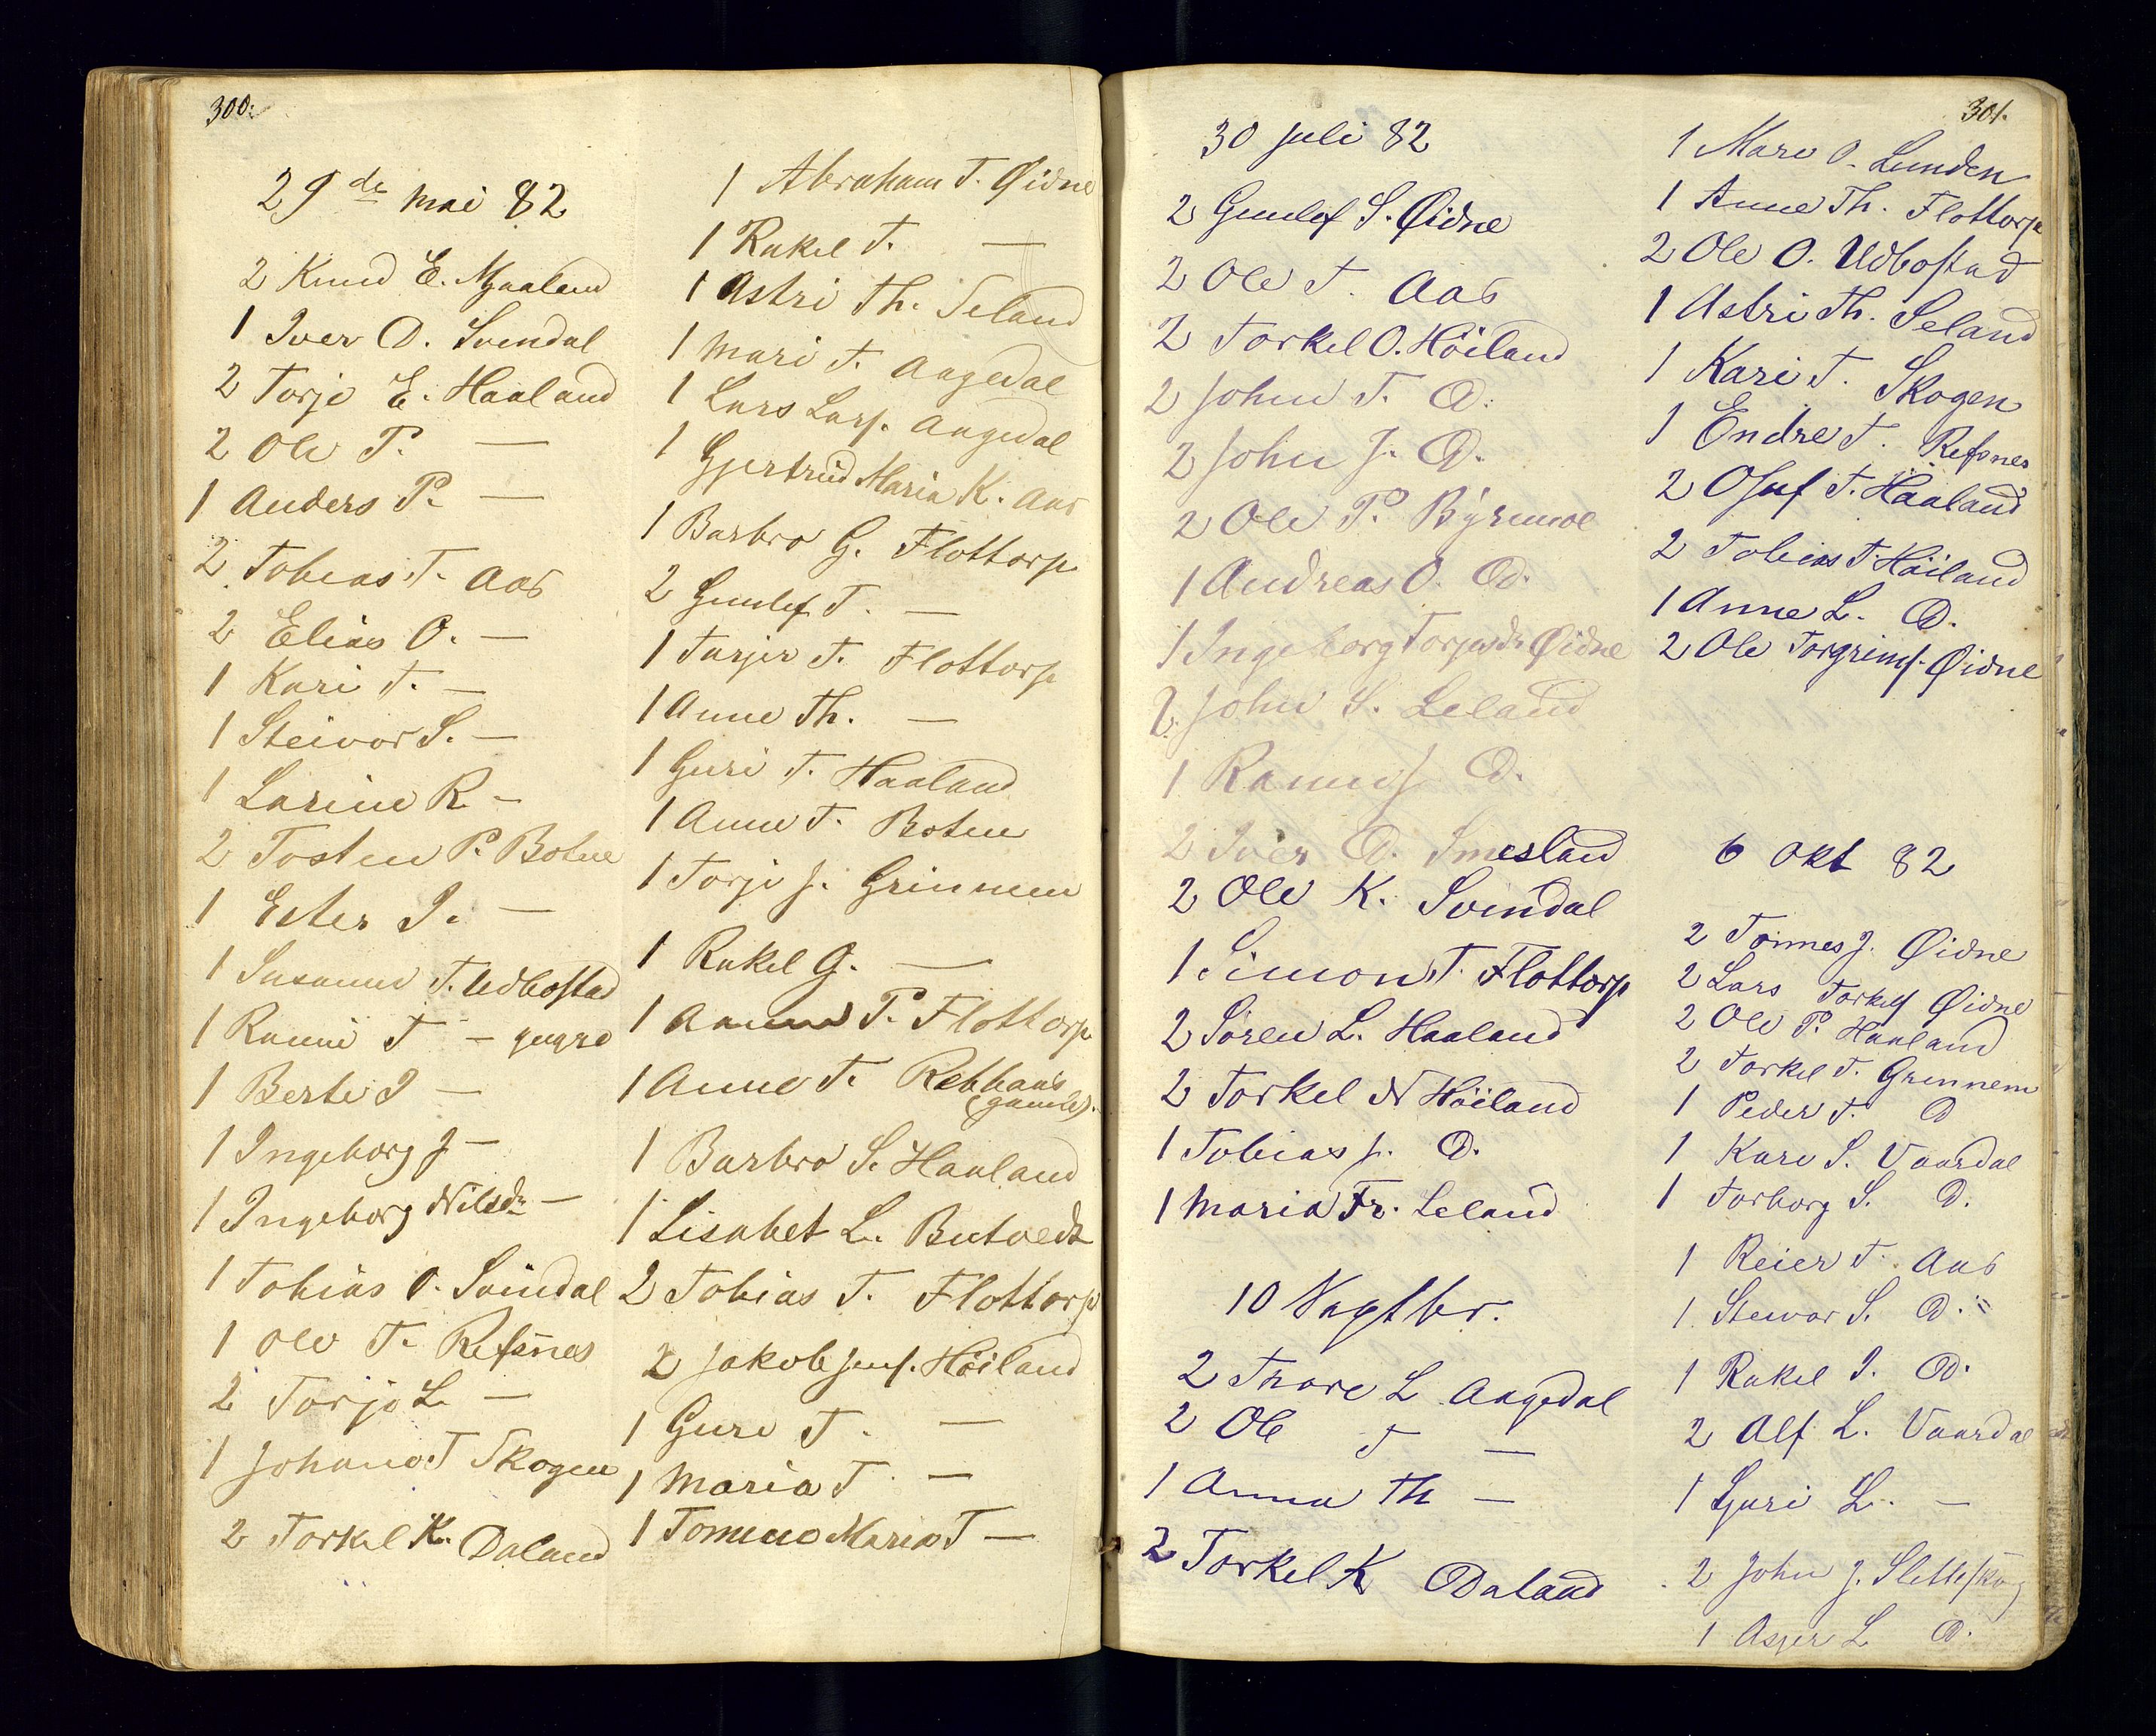 300.
29de Mai 82
2 Knud E. Mjaaland
1 Iver O. Svindal
2 Torje E. Haaland
2 Ole P. —
1 Anders P. —
2 Tobias T. Aas
2 Elias O. —
1 Kari T. —
1 Steivor S. —
1 Larine R —
2 Tosten P. Botne
1 Ester I. —
1 Susanne T. Udbostad
1 Rannei T —
1 Berte I —
1 Ingeborg J —
1 Ingeborg Nilsdr —
1 Tobias O. Svindal
1 Ole T. Refsnes
2 Torjo L. —
1 Johanne T Skogen
2 Torkel K. Daland
1 Abraham T. Øidne
1 Rakel T. —
1 Astri Th. Seland
1 Mari T. Aagedal
1 Lars Lars. Aagedal
1 Gjertrud Maria K. Aas
1 Barbro G. Flottorp
2 Gunlef T. —
1 Tarjer T. Flottorp
1 Anne Th. —
1 Guri T. Haaland
1 Anne T. Botne
1 Torje J. Grinnem
1 Rakel G. —
1 Anne P. Flottorp
1 Anne T. Rebbaas
(gamle).
1 Barbro S. Haaland
1 Lisabet L. Butvedt
2 Tobias T. Flottorp
2 Jakob Jens. Höiland
1 Guro T. —
1 Maria T —
1 Tomine Maria T —
301.
30 Juli 82
2 Gunlef S. Øidne
2 Ole T. Aas
2 Torkel O. Höiland
2 John T. D.
2 John J. D.
2 Ole P. Byremoe
1 Andreas O. D.
1 Ingeborg Torjesdr Øidne
2 John S. Leland
1 D.
2 Iver D. Smesland
2 Ole K. Svindal
1 Simon T. Flottorp
2 Sören L. Haaland
2 Torkel N Höiland
1 Tobias J. D.
1 Maria Fr. Leland
10
2 Thore L Aagedal
2 Ole T —
1 Anna Th —
2 Torkel K Daland
1 Mare O. Lunden
1 Anne Th. Flottorp
2 Ole O. Udbostad
1 Astri Th. Seland
1 Kari T. Skogen
1 Endre T. Refsnes
2 Osuf T. Haaland
2 Tobias T. Höiland
1 Anne L. D.
2 Ole Torgrims. Øidne
6 Okt 82
2 Tönnes J. Øidne
2 Lars Torkels Øidne
2 Ole P. Haaland
2 Torkel T. Grennem
1 Peder T. D
1 Kare S. Vaardal
1 Torborg S. D.
1 Reier T. Aas
1 Steivor S. D.
1 Rakel I. D.
2 Alf L. Vaardal
1 Guri L. —
2 John J. Sletteskog
1 Asger L D.